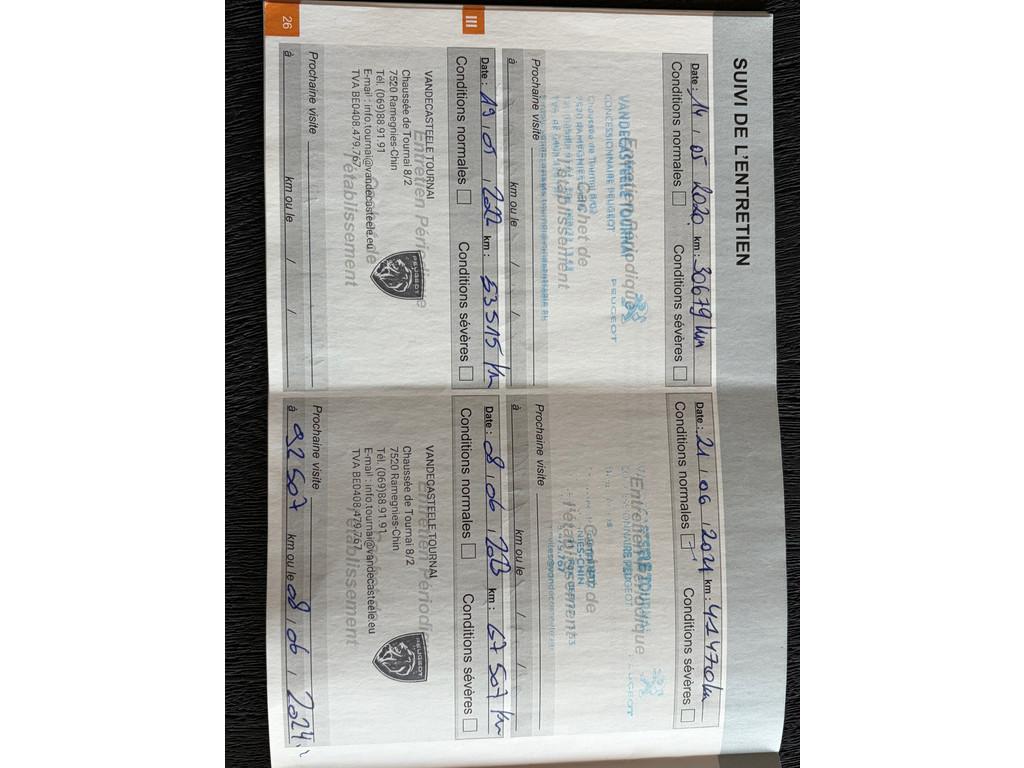 SUIVI DE L'ENTRETIEN
Date : 14 , 05 2020 km : 30679 km
Conditions normales Conditions sévères
Entretien Périodique
Cachet de
l'établissement
VANDECASTEELE TOURNAI
CONCESSIONNAIRE PEUGEOT
PEUGEOT
Prochaine visite
à km ou le / /
Date : 21 , 06 , 2021 km : 41470 km
Conditions normales Conditions sévères
Entretien Périodique
Cachet de
l'établissement
PEUGEOT
Prochaine visite
à km ou le / /
III
Date : 19 , 05 , 2022 km : 53515 km
Conditions normales Conditions sévères
Entretien Périodique
Cachet de
l'établissement
VANDECASTEELE TOURNAI
Chaussée de Tournai 8/2
7520 Ramegnies-Chin
Tél. (069)88 91 91
E-mail : info.tournai@vandecasteele.eu
TVA BE0408.479.767
PEUGEOT
Prochaine visite
à km ou le / /
Date : 8 , 06 , 2023 km : 67507 km
Conditions normales Conditions sévères
Entretien Périodique
l'établissement
VANDECASTEELE TOURNAI
Chaussée de Tournai 8/2
7520 Ramegnies-Chin
Tél. (069)88 91 91
E-mail : info.tournai@vandecasteele.eu
TVA BE0408.479.767
PEUGEOT
Prochaine visite
à 92507 km ou le 08 , 06 , 2024
26